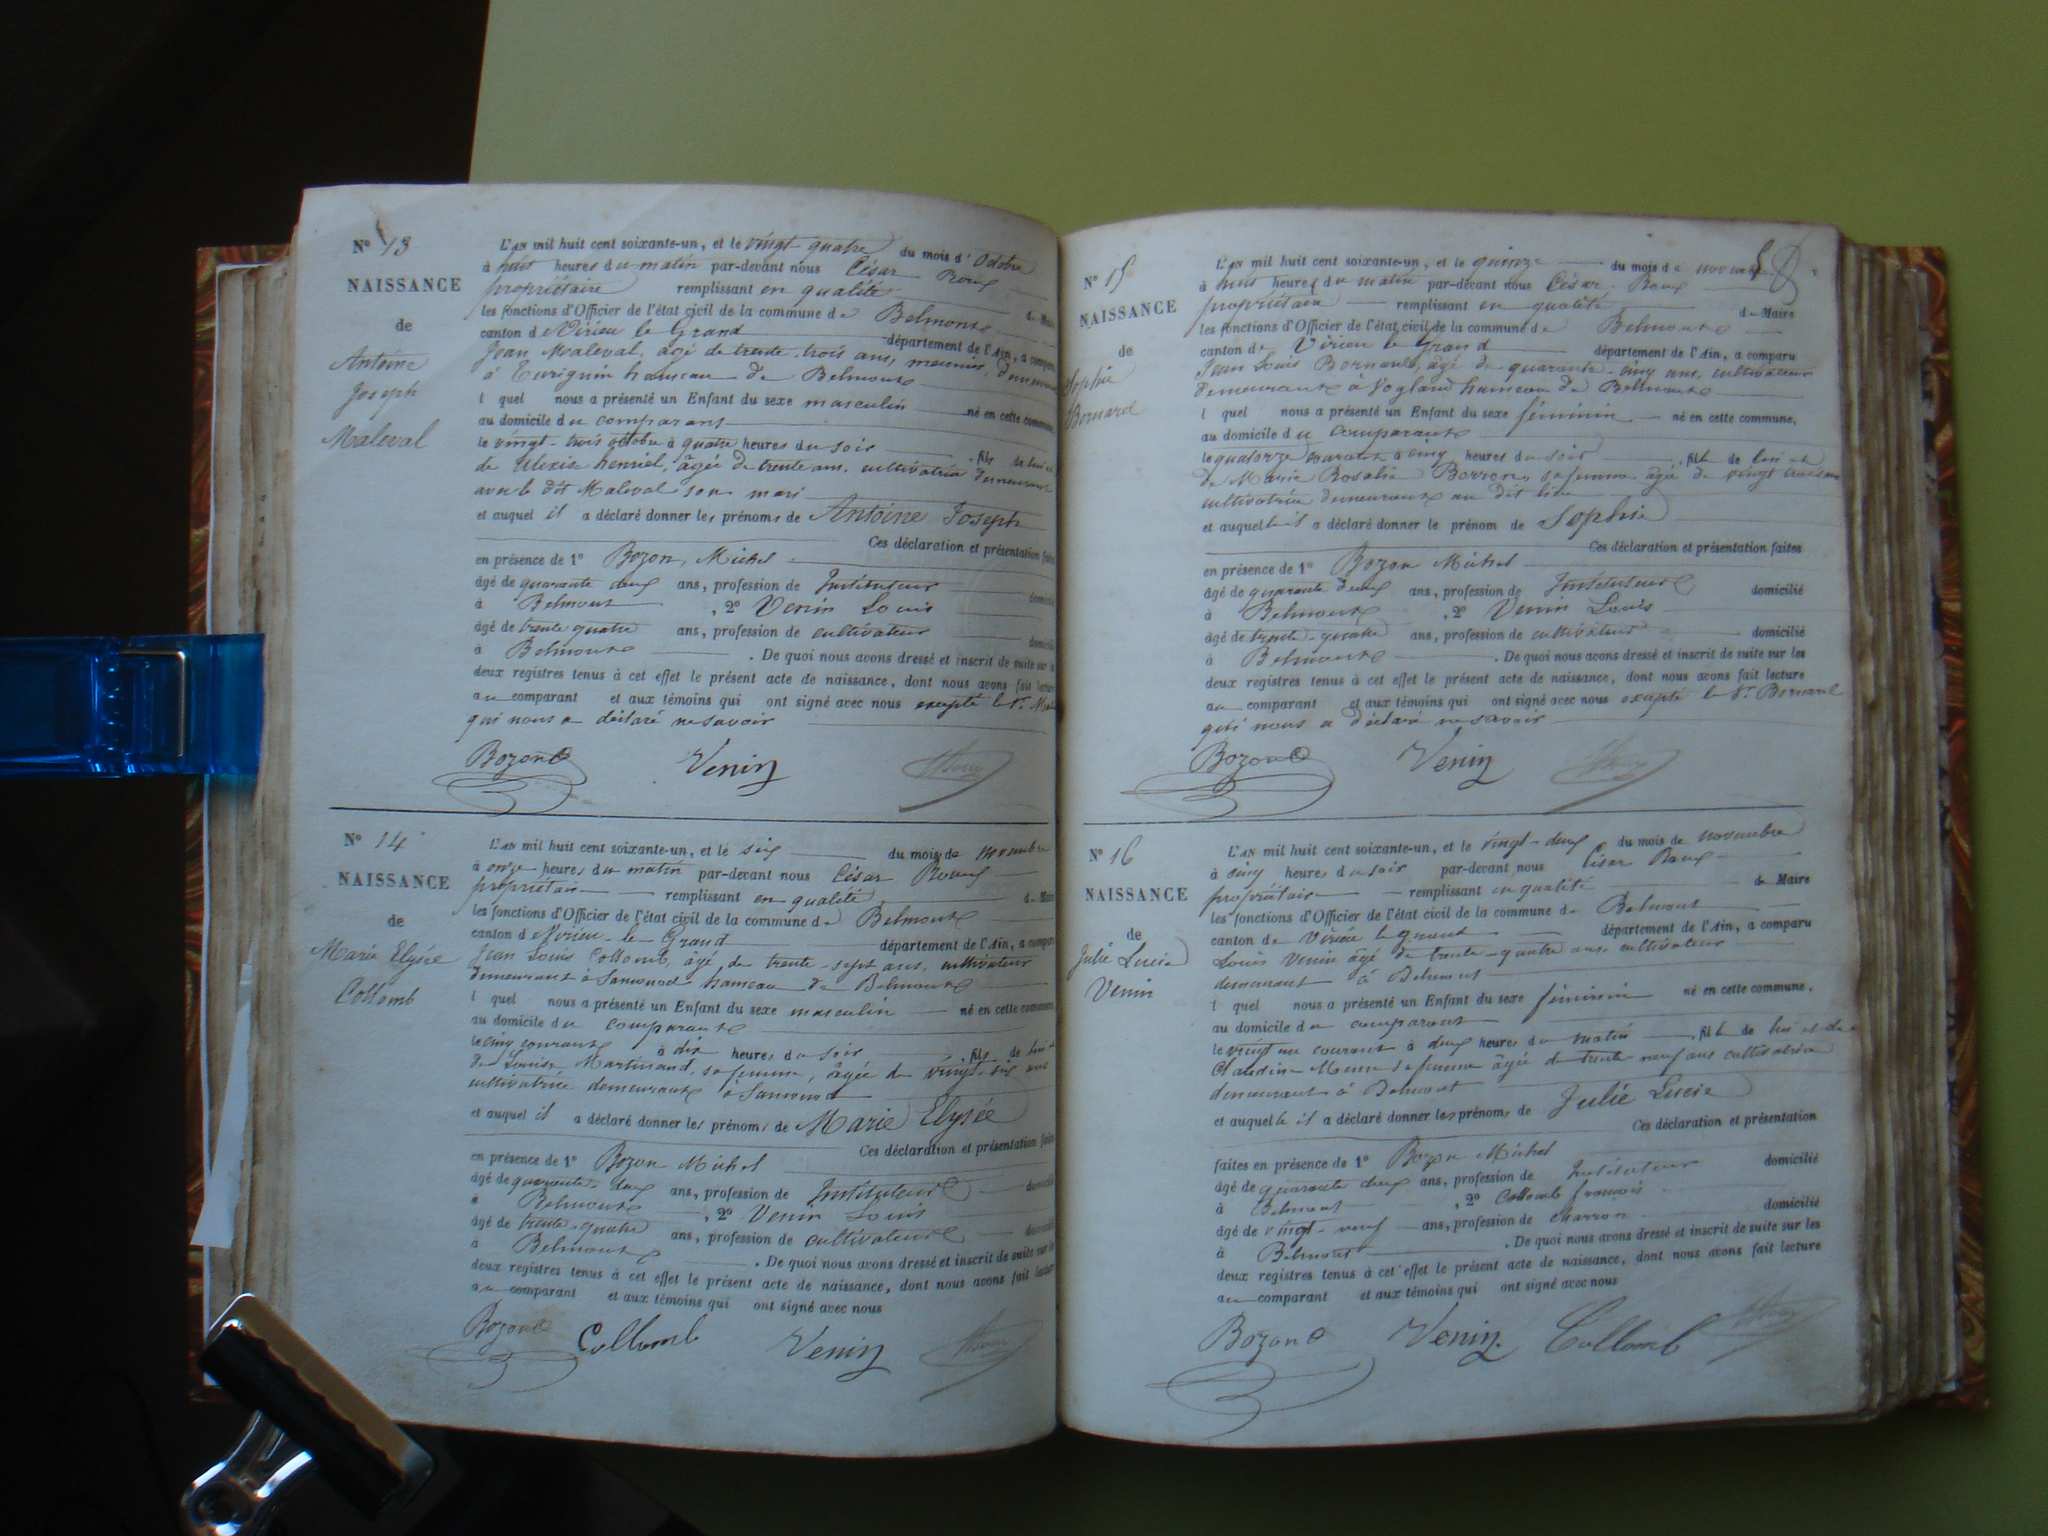 N° 13
NAISSANCE
de
Antoine
Joseph
Maleval
L'AN mil huit cent soixante-un, et le vingt quatre du mois d'Octobre
à huit heures du matin par-devant nous César Roux
propriétaire remplissant en qualité de Maire
les fonctions d'Officier de l'état civil de la commune de Belmont
canton de Virieu le Grand département de l'Ain, a comparu
Jean Maleval, âgé de trente trois ans, meunier, demeurant
à hameau de Belmont
l quel nous a présenté un Enfant du sexe masculin né en cette commune,
au domicile du comparant
le vingt-trois octobre à quatre heures du soir, fils de lui et
de henriel, âgée de trente ans, cultivatrice demeurant
avec le dit Maleval son mari
et auquel il a déclaré donner les prénoms de Antoine Joseph
Ces déclaration et présentation faites
en présence de 1° Bozon, Michel
âgé de quarante deux ans, profession de Instituteur domicilié
à Belmont, 2° Venin Louis
âgé de trente quatre ans, profession de cultivateur domicilié
à Belmont. De quoi nous avons dressé et inscrit de suite sur les
deux registres tenus à cet effet le présent acte de naissance, dont nous avons fait lecture
au comparant et aux témoins qui ont signé avec nous excepté le Sr.
qui nous a déclaré ne savoir
Bozon Venin
N° 14
NAISSANCE
de
Marie Elysée
Collomb
L'AN mil huit cent soixante-un, et le six du mois de novembre
à onze heures du matin par-devant nous César Roux
propriétaire remplissant en qualité de Maire
les fonctions d'Officier de l'état civil de la commune de Belmont
canton de Virieu-le-Grand département de l'Ain, a comparu
Jean Louis Collomb, âgé de trente-sept ans, cultivateur
demeurant à Samonod hameau de Belmont
l quel nous a présenté un Enfant du sexe masculin né en cette commune,
au domicile du comparant
le cinq courant à dix heures du soir, fils de lui et
de Louise Martinand, sa femme, âgée de vingt-six ans
cultivatrice demeurant à Samonod
et auquel il a déclaré donner les prénoms de Marie Elysée
Ces déclaration et présentation faites
en présence de 1° Bozon Michel
âgé de quarante-deux ans, profession de Instituteur domicilié
à Belmont, 2° Venin Louis
âgé de trente-quatre ans, profession de cultivateur domicilié
à Belmont. De quoi nous avons dressé et inscrit de suite sur les
deux registres tenus à cet effet le présent acte de naissance, dont nous avons fait lecture
au comparant et aux témoins qui ont signé avec nous
Bozon Collomb Venin
N° 15
NAISSANCE
de
Sophie
Bornard
L'AN mil huit cent soixante-un, et le quinze du mois de novembre
à huit heures du matin par-devant nous César Roux
propriétaire remplissant en qualité de Maire
les fonctions d'Officier de l'état civil de la commune de Belmont
canton de Virieu le Grand département de l'Ain, a comparu
Jean Louis Bornard, âgé de quarante-cinq ans, cultivateur
demeurant à Vogland hameau de Belmont
l quel nous a présenté un Enfant du sexe féminin né en cette commune,
au domicile du comparant
le quatorze courant à cinq heures du soir, fille de lui et
de Marie Rosalie sa femme âgée de vingt
cultivatrice demeurant au dit lieu
et auquelle il a déclaré donner le prénom de Sophie
Ces déclaration et présentation faites
en présence de 1° Bozon Michel
âgé de quarante deux ans, profession de Instituteur domicilié
à Belmont, 2° Venin Louis
âgé de trente-quatre ans, profession de cultivateur domicilié
à Belmont. De quoi nous avons dressé et inscrit de suite sur les
deux registres tenus à cet effet le présent acte de naissance, dont nous avons fait lecture
au comparant et aux témoins qui ont signé avec nous excepté le Sr Bornard
qui nous a déclaré ne savoir
Bozon Venin
N° 16
NAISSANCE
de
Julie Lucie
Venin
L'AN mil huit cent soixante-un, et le vingt-deux du mois de novembre
à cinq heures du soir par-devant nous César Roux
propriétaire remplissant en qualité de Maire
les fonctions d'Officier de l'état civil de la commune de Belmont
canton de Virieu le grand département de l'Ain, a comparu
Louis Venin âgé de trente-quatre ans, cultivateur
demeurant à Belmont
l quel nous a présenté un Enfant du sexe féminin né en cette commune,
au domicile du comparant
le vingt un courant à deux heures du matin, fille de lui et de
Claudine sa femme âgée de trente neuf ans cultivatrice
demeurant à Belmont
et auquelle il a déclaré donner les prénoms de Julie Lucie
Ces déclaration et présentation
faites en présence de 1° Bozon Michel
âgé de quarante deux ans, profession de Instituteur domicilié
à Belmont, 2° Collomb françois
âgé de vingt-neuf ans, profession de charron domicilié
à Belmont. De quoi nous avons dressé et inscrit de suite sur les
deux registres tenus à cet effet le présent acte de naissance, dont nous avons fait lecture
au comparant et aux témoins qui ont signé avec nous
Bozon Venin Collomb